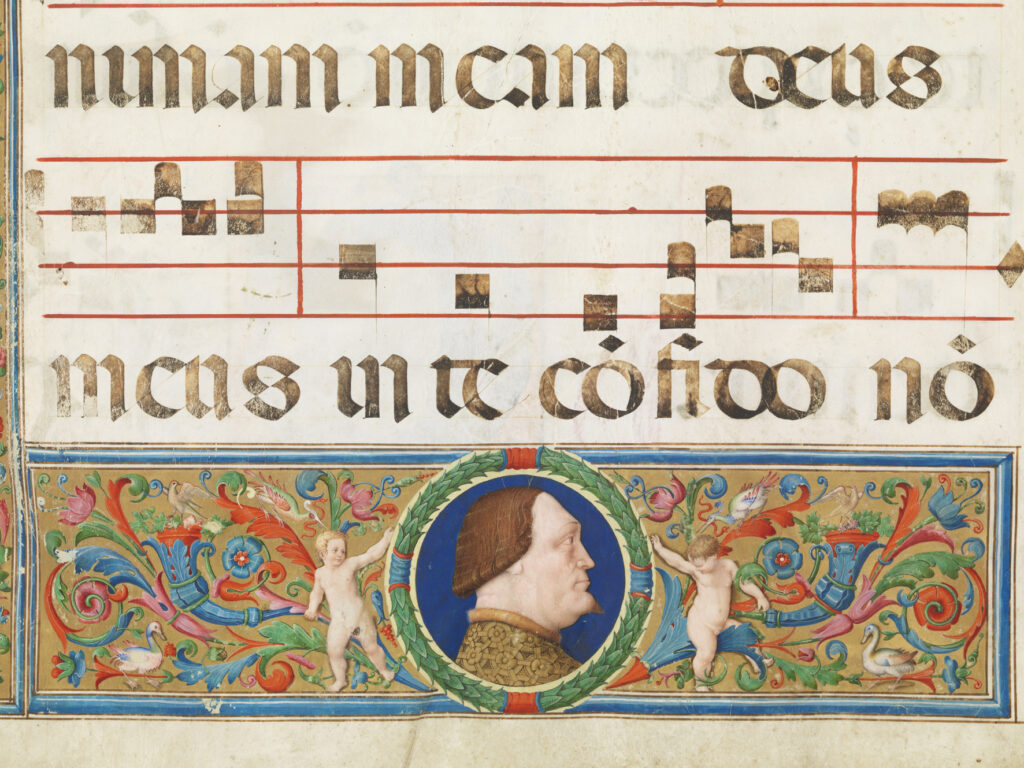 nimam meam deus
meus in te cōfido nō